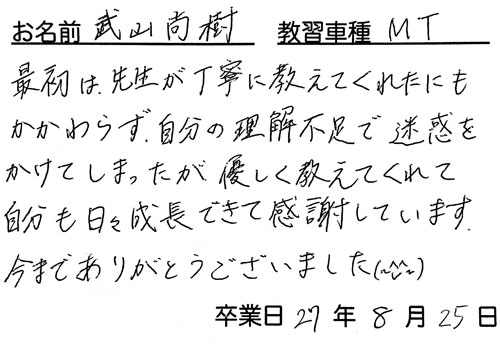 お名前 武山尚樹 教習車種 MT
最初は、先生が丁寧に教えてくれたにも
かかわらず、自分の理解不足で迷惑を
かけてしまったが、優しく教えてくれて
自分も日々成長できて感謝しています。
今までありがとうございました(^^)
卒業日 27 年 8 月 25 日